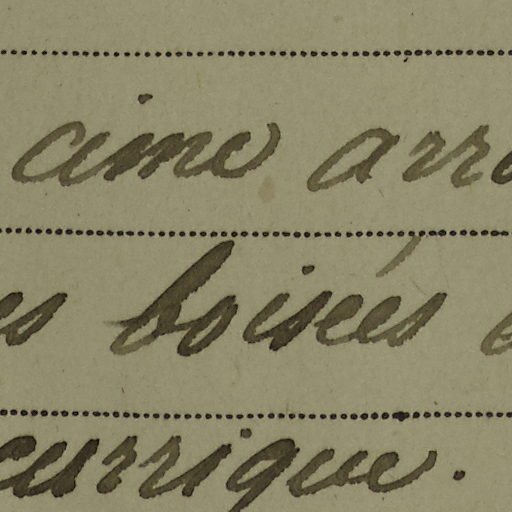 cime arro
es boisées
currique.